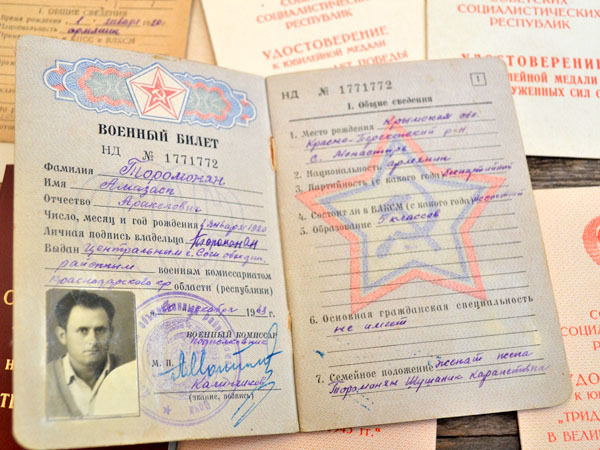 I. ОБЩИЕ СВЕДЕНИЯ
1. января 1920
армянин
СОЦИАЛИСТИЧЕСКИХ
РЕСПУБЛИК
УДОСТОВЕРЕНИЕ
К ЮБИЛЕЙНОЙ МЕДАЛИ
ЛЕТ ПОБЕДЫ
СОВЕТСКИХ
СОЦИАЛИСТИЧЕСКИХ
РЕСПУБЛИК
УДОСТОВЕРЕНИЕ
ЮБИЛЕЙНОЙ МЕДАЛИ
УЖЕННЫХ СИЛ С
ВОЕННЫЙ БИЛЕТ
НД № 1771772
Фамилия Торомонян
Имя Амазасп
Отчество Аракелович
Число, месяц и год рождения 1 января 1920
Личная подпись владельца Торомонян
Выдан Центральным г. Сочи
районным военным комиссариатом
Краснодарского кр области (республики)
1963 г.
ВОЕННЫЙ КОМИССАР
Подполковник
М. П.
Калмыков
(звание, подпись)
НД № 1771772
1
I. Общие сведения
1. Место рождения Крымская обл.
р-н
с. Монастырь
2. Национальность армянин
3. Партийность (с какого года) беспартийный
4. Состоит ли в ВЛКСМ (с какого года) не состоит
5. Образование 5 классов
6. Основная гражданская специальность
не имеет
7. Семейное положение женат жена
Торомонян Шушаник Карапетовна
"ТРИД
В ВЕЛИК